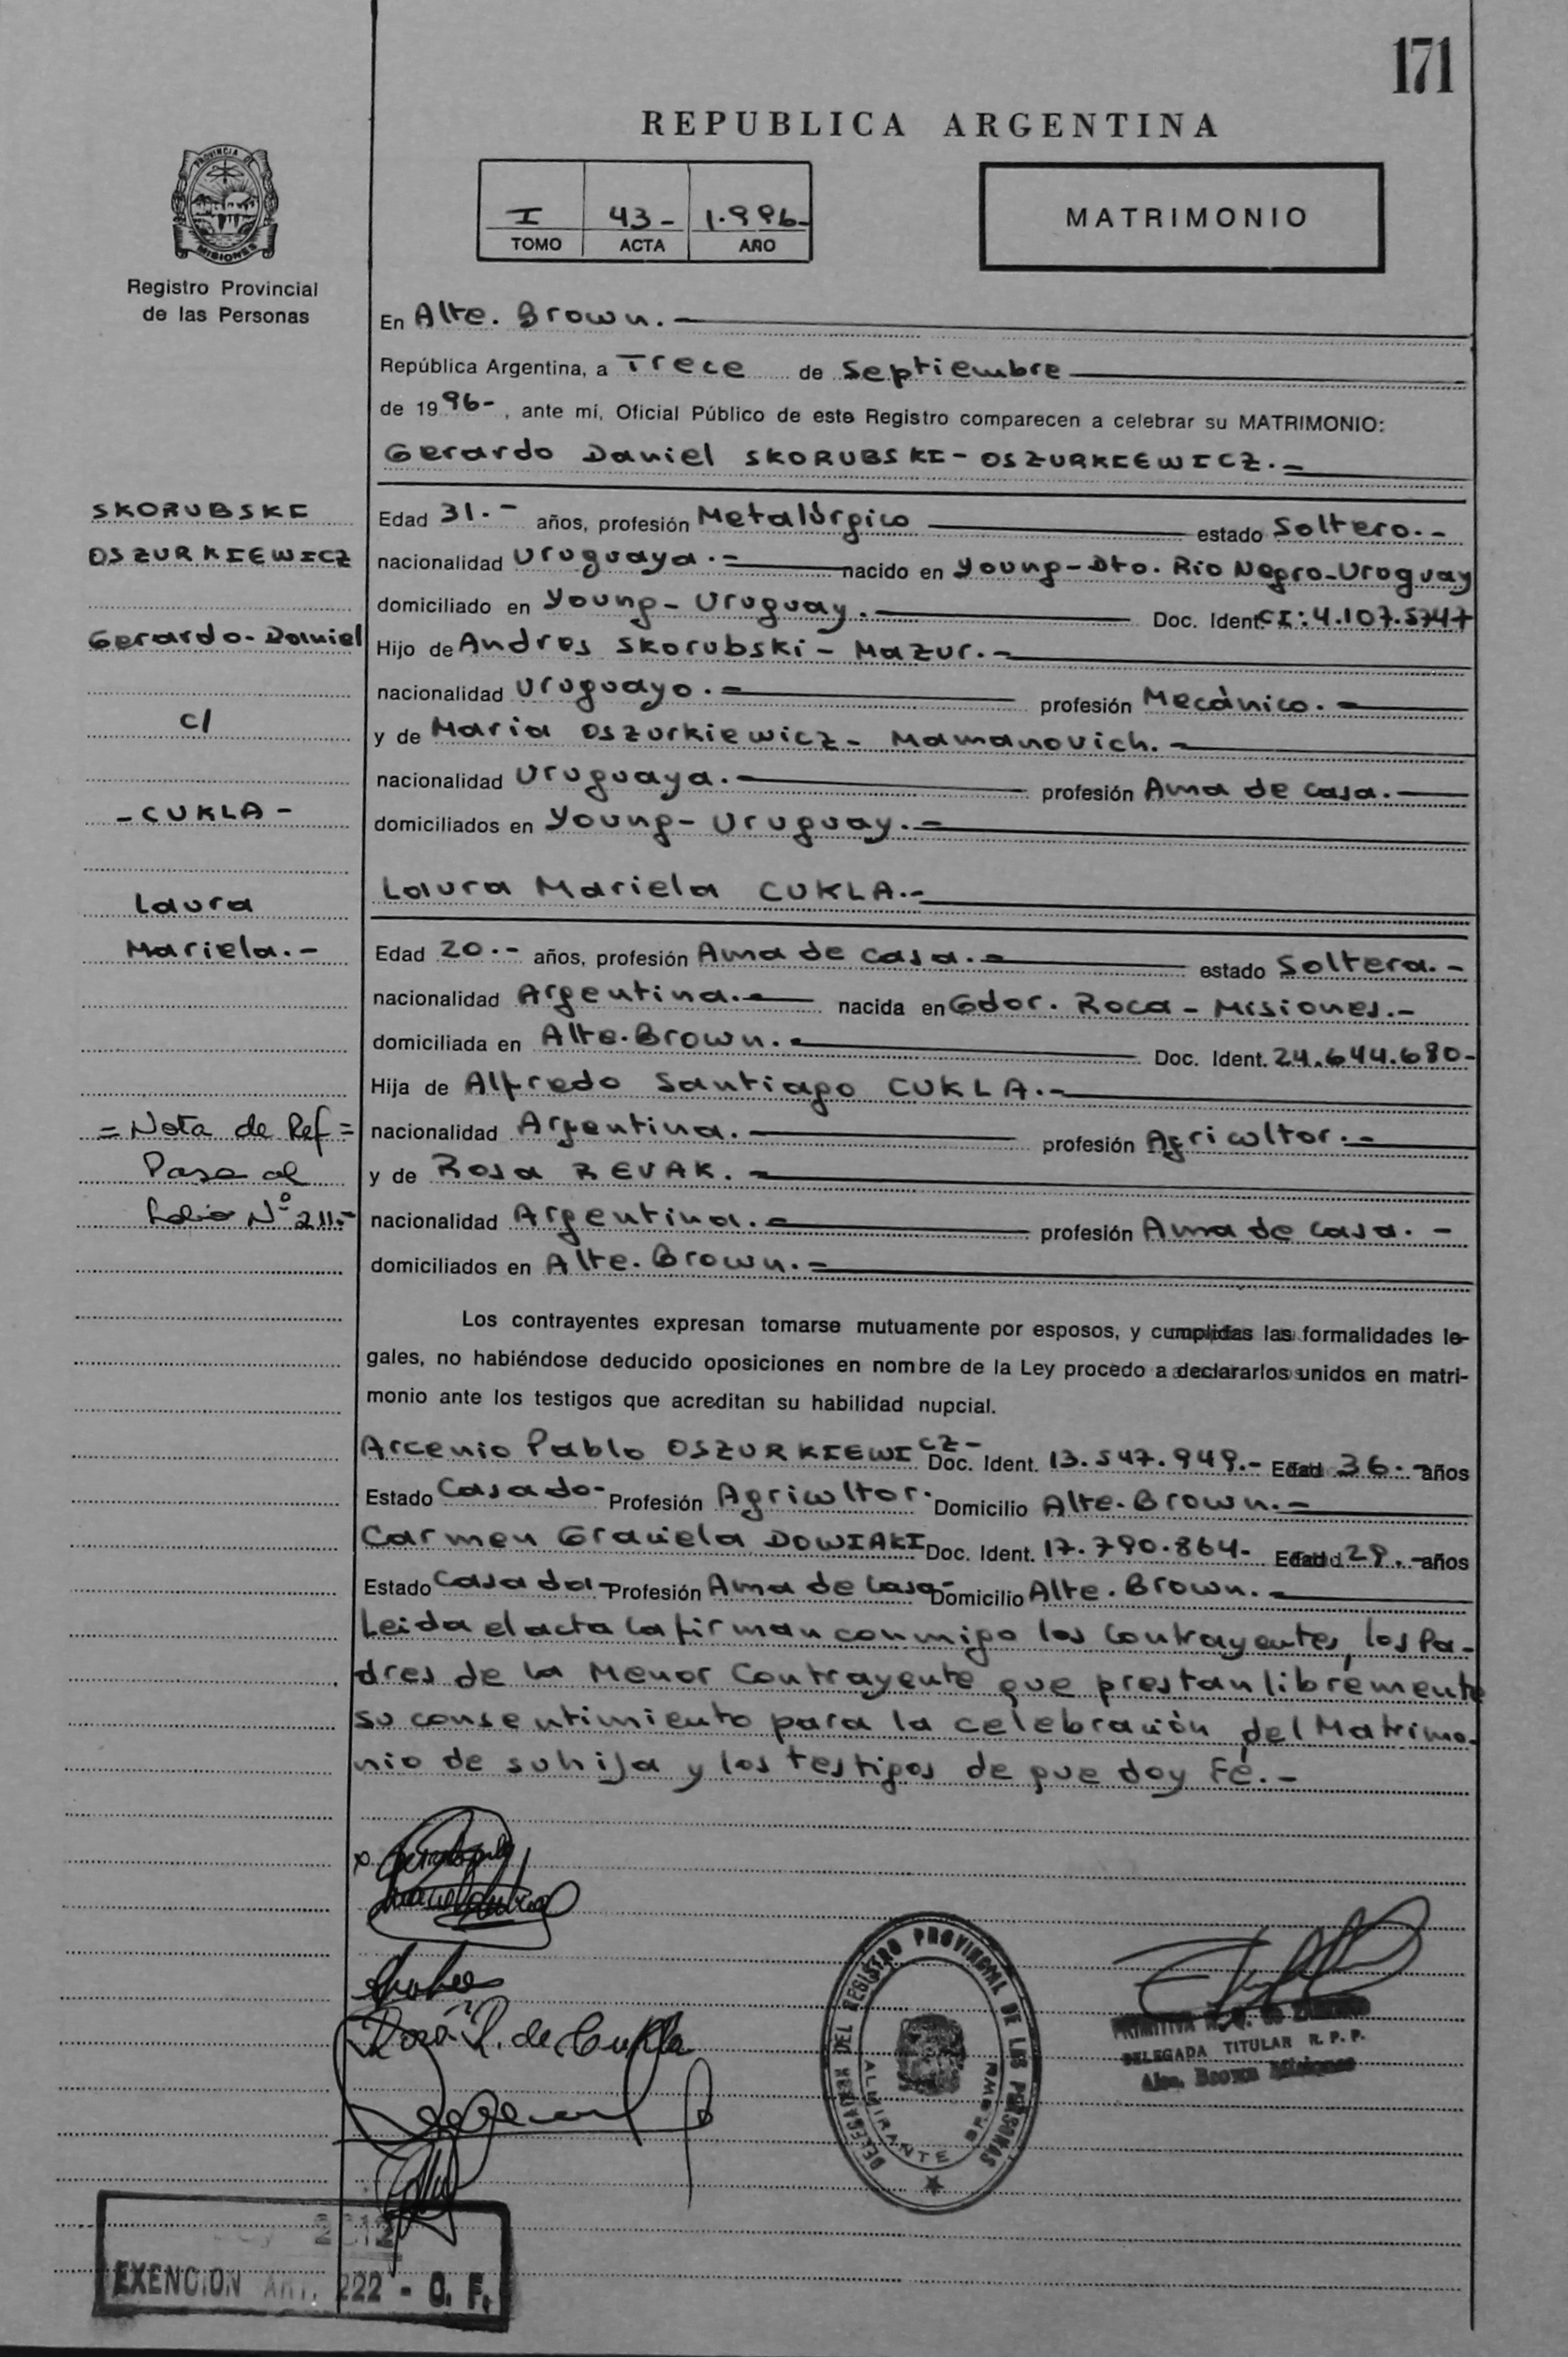 171
REPUBLICA ARGENTINA
PROVINCIA DE
MISIONES
Registro Provincial
de las Personas
I 43- 1.996-
TOMO ACTA AÑO
MATRIMONIO
En Alte. Brown.-
República Argentina, a Trece de Septiembre
de 1996-, ante mí, Oficial Público de este Registro comparecen a celebrar su MATRIMONIO:
Gerardo Daniel SKORUBSKI-OSZURKIEWICZ.-
SKORUBSKI
OSZURKIEWICZ
Gerardo-Daniel
c/
-CUKLA-
Laura
Mariela.-
=Nota de Ref=
Pasa al
folio Nº 211.-
Edad 31.- años, profesión Metalúrgico estado Soltero.-
nacionalidad Uruguaya.- nacido en Young-Dto. Rio Negro-Uruguay
domiciliado en Young-Uruguay.- Doc. Ident. CI:4.107.574-7
Hijo de Andres Skorubski-Mazur.-
nacionalidad Uruguayo.- profesión Mecànico.-
y de Maria Oszurkiewicz-Mamanovich.-
nacionalidad Uruguaya.- profesión Ama de casa.-
domiciliados en Young-Uruguay.-
Laura Mariela CUKLA.-
Edad 20.- años, profesión Ama de casa.- estado Soltera.-
nacionalidad Argentina.- nacida en Gdor. Roca-Misiones.-
domiciliada en Alte.Brown.- Doc. Ident. 24.644.680-
Hija de Alfredo Santiago CUKLA.-
nacionalidad Argentina.- profesión Agricultor.-
y de Rosa REVAK.-
nacionalidad Argentina.- profesión Ama de casa.-
domiciliados en Alte.Brown.-
Los contrayentes expresan tomarse mutuamente por esposos, y cumplidas las formalidades le-
gales, no habiéndose deducido oposiciones en nombre de la Ley procedo a declararlos unidos en matri-
monio ante los testigos que acreditan su habilidad nupcial.
Arcenio Pablo OSZURKIEWICZ- Doc. Ident. 13.547.949.- Edad 36.- años
Estado Casado- Profesión Agricultor. Domicilio Alte.Brown.-
Carmen Graciela DOWIAKI Doc. Ident. 17.790.864- Edad 29.- años
Estado Casada- Profesión Ama de Casa- Domicilio Alte.Brown.-
Leida el acta la firman conmigo los contrayentes, los Pa-
dres de la Menor Contrayente que prestan librèmente
su consentimiento para la celebraciòn del Matrimo-
nio de su hija y los testigos de que doy Fè.-
Rosa R. de Cukla
DELEGACION DEL REGISTRO PROVINCIAL DE LAS PERSONAS
ALMIRANTE BROWN
DELEGADA TITULAR R. P. P.
Alte. Brown Misiones
2012
EXENCION ART. 222 - C. F.